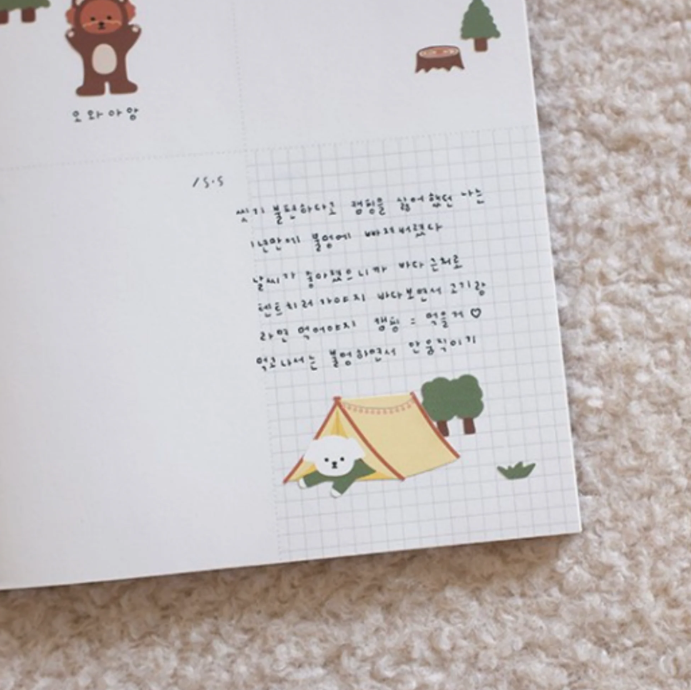 오와아앙
15.5
씻기 불편하다고 캠핑을 싫어했던 나는
1년만에 불멍에 빠져버렸다
날씨가 좋아졌으니까 바다 근처로
텐트치러 가야지 바다보면서 고기랑
라면 먹어야지 캠핑 = 먹을거 ♡
먹고나서는 불멍하면서 안움직이기